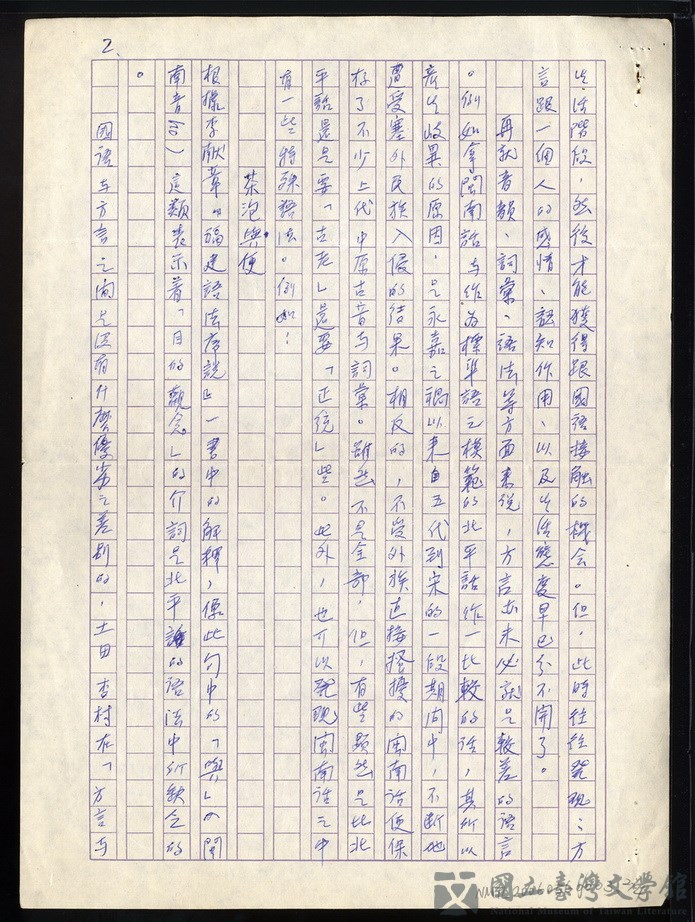 2.
生活階段，然後才能獲得跟國語接觸的機會。但，此時往往發現：方
言跟一個人的感情、認知作用、以及生活態度早已分不開了。
再就音韻、詞彙、語法等方面來說，方言也未必就是較差的語言
。例如拿閩南話与作為標準語之模範的北平話作一比較的話，其所以
產生歧異的原因，是永嘉之禍以來自五代到宋的一段期间中，不断地
遭受塞外民族入侵的結果。相反的，不受外族直接搔擾的閩南话便保
存了不少上代中原古音与詞彙。雖然不是全部，但，有些顯然是比北
平話還是要「古老」還要「正统」些。此外，也可以發現閩南话之中
有一些特殊語法。例如：
茶泡與便
根據李献章《福建語法序說》一書中的解釋，像此句中的「與」（閩
南音）這類表示着「目的觀念」的介詞是北平話的語法中所缺乏的
。
國語与方言之间是沒有什麼優劣之差別的，土田杏村在「方言与
國立臺灣文學館
National Museum of Taiwan Literature